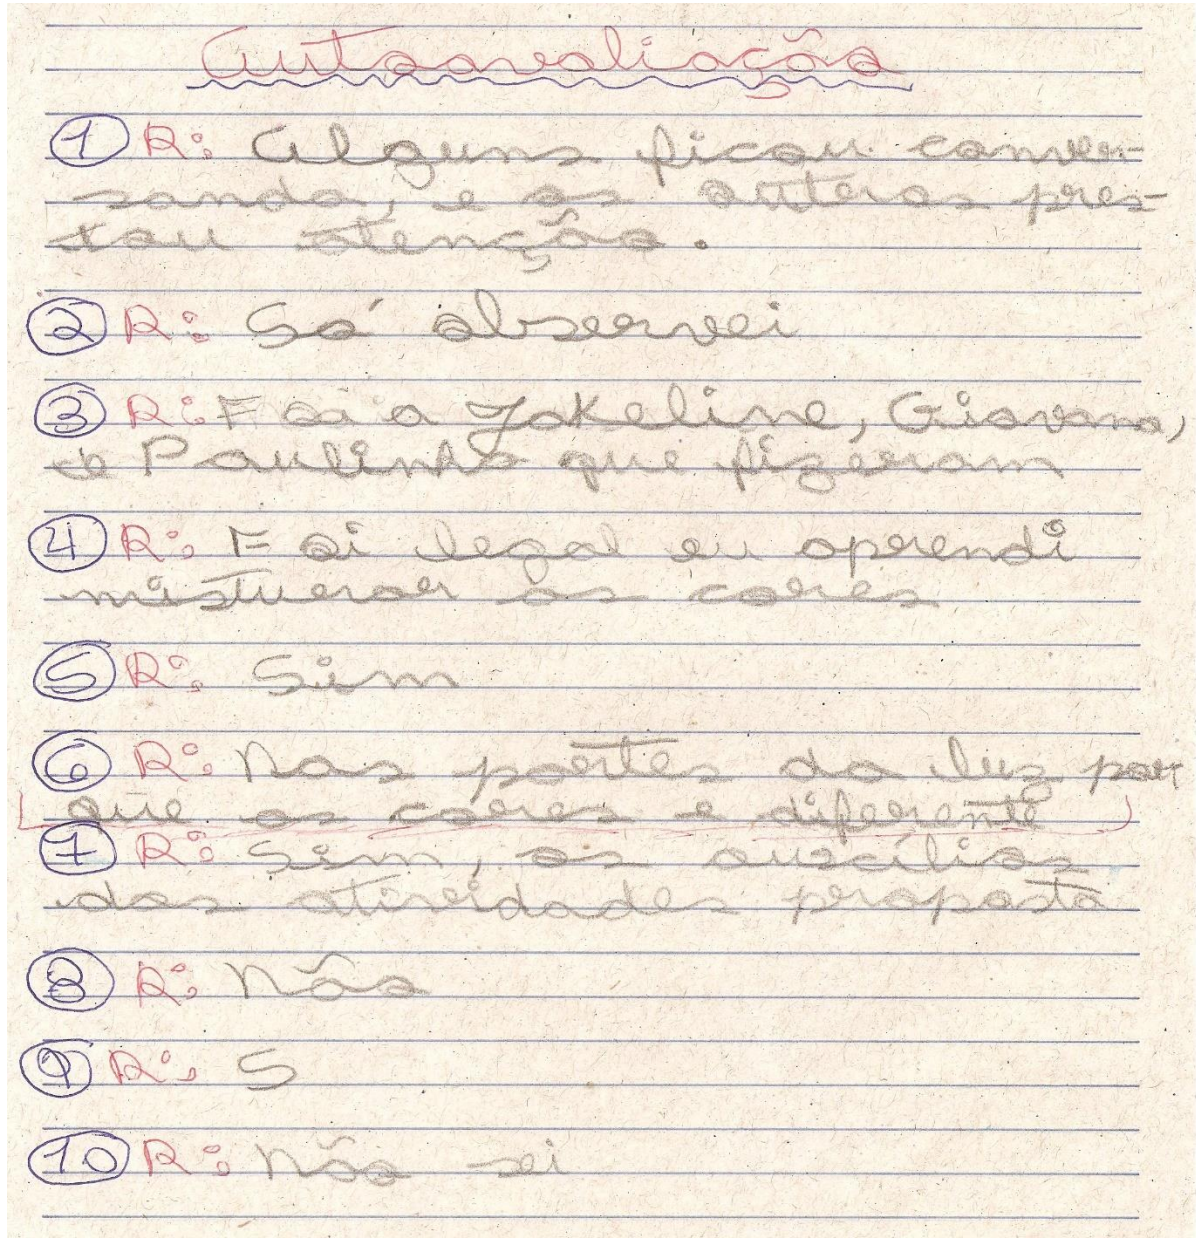 Autoavaliação
1 R: Alguns ficou conver-
sando, e os outros pres-
tou atenção.
2 R: Só observei
3 R: Foi a Jokeline, Giovana,
e Paulinho que fizeram
4 R: Foi legal eu aprendi
misturar as cores
5 R: Sim
6 R: Nas partes da luz por
que as cores e diferente
7 R: Sim, os auxílios
das atividades proposta
8 R: Não
9 R: 5
10 R: Não sei